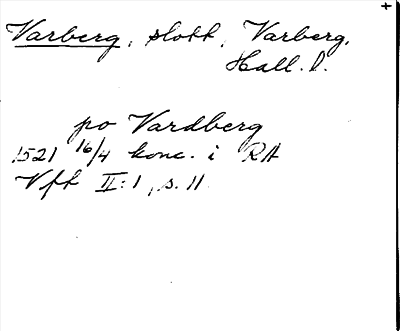 Varberg, slott, Varberg,
Hall. l.
po Vardberg
1521 16/4 konc. i RA
Vfk II:1, s. 11